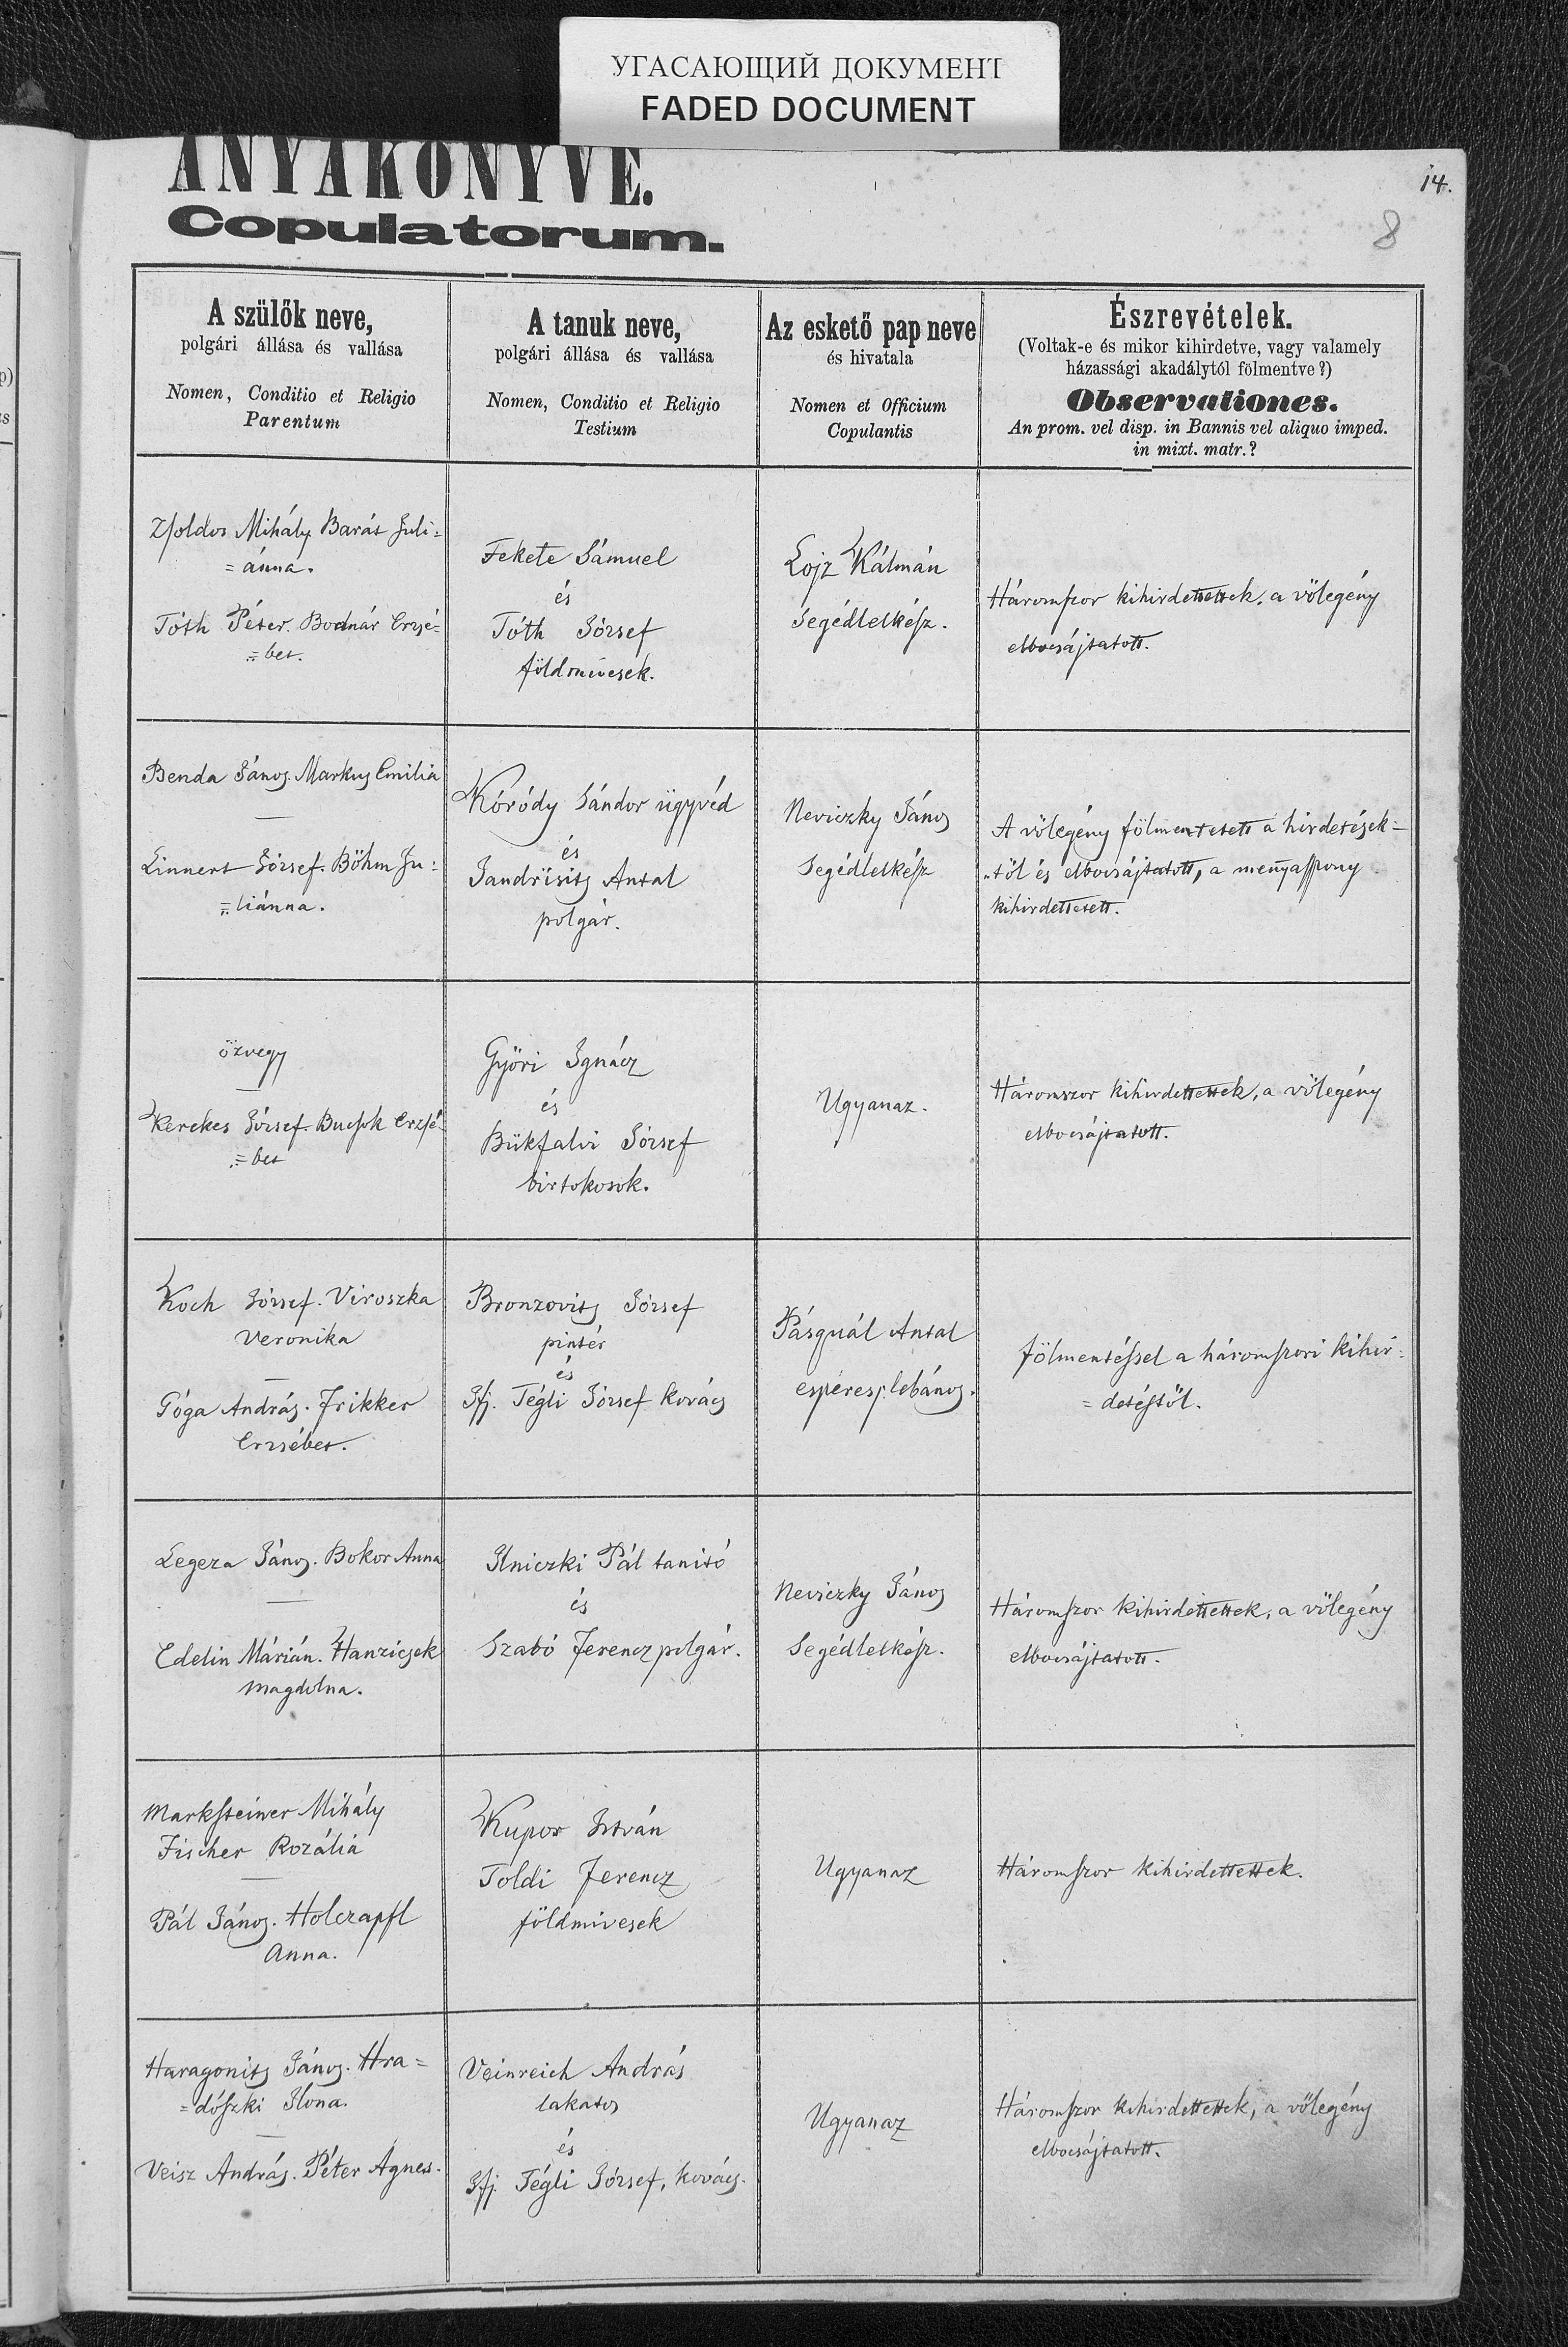 УГАСАЮЩИЙ ДОКУМЕНТ
FADED DOCUMENT
ANYAKÖNYVE.
Copulatorum.
14.
8
A szülők neve,
polgári állása és vallása
Nomen, Conditio et Religio
Parentum
A tanuk neve,
polgári állása és vallása
Nomen, Conditio et Religio
Testium
Az eskető pap neve
és hivatala
Nomen et Officium
Copulantis
Észrevételek.
(Voltak-e és mikor kihirdetve, vagy valamely
házassági akadálytól fölmentve?)
Observationes.
An prom. vel disp. in Bannis vel aliquo imped.
in mixt. matr.?
Zsoldos Mihály Barát Juli=
=ánna.
Tóth Péter. Bodnár Erzsé=
=bet.
Fekete Sámuel
és
Tóth József
földmívesek.
Lojz Kálmán
Segédlelkész.
Háromszor kihirdettettek, a vőlegény
elbocsájtatott.
Benda János. Markus Emilia
Linnert József. Böhm Ju=
=liánna.
Kóródy Sándor ügyvéd
és
Jandrisits Antal
polgár.
Neviczky János
Segédlelkész
A vőlegény fölmentetett a hirdetések=
=től és elbocsájtatott, a menyasszony
kihirdettetett.
özvegy
Kerekes József. Bucsok Erzsé=
=bet
Győri Ignácz
és
Bükfalvi József
birtokosok.
Ugyanaz.
Háromszor kihirdettettek, a vőlegény
elbocsájtatott.
Koch József. Viroszka
Veronika
Góga András. Frikker
Erzsébet.
Bronzovits József
pintér
és
Ifj. Tégli József kovács
Pásquál Antal
esperesplebános.
fölmentéssel a háromszori kihir=
=detéstől.
Legeza János. Bokor Anna
Edelin Márián. Hanzicsek
Magdolna.
Ilniczki Pál tanitó
és
Szabó Ferencz polgár.
Neviczky János
Segédlelkész.
Háromszor kihirdettettek, a vőlegény
elbocsájtatott.
Marksteiner Mihály
Fischer Rozália
Pál János. Holczapfl
Anna.
Kupor István
Toldi Ferencz
földmivesek
Ugyanaz
Háromszor kihirdettettek.
Haragonits János. Hra=
=dószki Ilona.
Veisz András. Péter Ágnes.
Veinreich András
lakatos
és
Ifj. Tégli József, kovács.
Ugyanaz
Háromszor kihirdettettek, a vőlegény
elbocsájtatott.